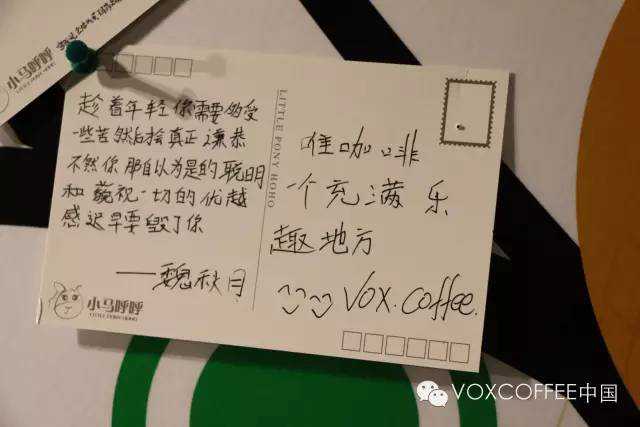 小马呼呼
趁着年轻你需要多受
一些苦然后会真正谦恭
不然你那自以为是的聪明
和藐视一切的优越
感迟早要毁了你
——魏秋月
小马呼呼
LITTLE PONY HOHO
LITTLE PONY HOHO
唯咖啡
一个充满乐
趣地方
VOX.coffee.
VOXCOFFEE中国